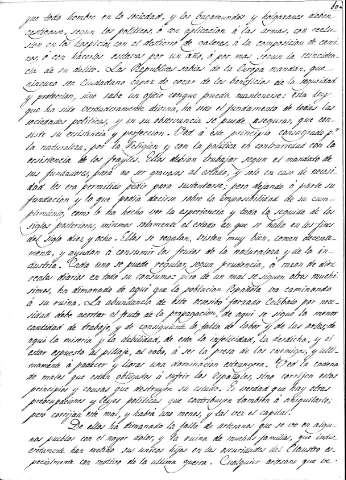 que todo hombre en la sociedad, y los vagamundos y holgazanes
segun los politicos, ó con aplicacion á las armas, con
sion en los hospicios con el destierro de á la composicion de cami-
nos, ó con hacerles esclavos por un año, ó por mas segun la
cia de su delito. Las Republicas sabias de la Europa mandan, que
ninguno sea Ciudadano capaz de gozar de los beneficios de la seguridad
y proteccion, sino sabe un oficio conque pueda mantenerse: esta ley
que ha sido verdaderamente divina, ha sido el fundamento de todas las
sociedades politicas, y en su observancia se puede asegurar, que con-
siste su existencia y perfeccion. Ved á este principio consagrado pr.
la naturaleza, por la Religion y con la politica en contrariedad con la
existencia de los frayles. Ellos debian trabajar segun el mandato de
sus fundadores, para no ser gravosos al estado, y solo en caso de necesi-
dad les era permitido pedir para sustentarse; pero dejando á parte su
fundacion y lo que podia decirse sobre la imposibilidad de su cum-
plimiento, como lo ha hecho ver la experiencia y toda la seguida de los
siglos posteriores, miremos solamente el estado en que se halla en los fines
del siglo diez y ocho. Ellos se regalan, visten muy bien, comen
mente, y ayudan á consumir los frutos de la naturaleza y de la in-
dustria. Cada uno se puede regular, segun prudencia, á razon de diez
reales diarios en todo su consumo: pero de un mal se siguen otros muchi-
simos, ha dimanado de aqui que la poblacion Española va caminando
á su ruina. La abundancia de este numero forzado Celibato por nece-
sidad debe acortar el fruto de la propagacion, de aqui se sigue la menor
cantidad de trabajo, y de consiguiente la falta de labor y de sus
aqui la miseria y la debilidad, de esto la infelicidad, la desdicha, y el
estar expuesto al pillage, al robo, á ser la presa de los enemigos, y ulti-
mamente á padecer y llorar una dominacion extrangera. Ved la cadena
de males que están obligados á sufrir los Españoles, sino corrigen estos
principios y causas que destruyen su estado. Es verdad que hay otras
preocupaciones y leyes politicas que contribuyen tambien á aniquilarlo,
pero corrijan este mal, y habrá uno menos, y tal vez el capital.
De ellos ha dimanado la falta de artesanos que se ve en algu-
nos pueblos con el mayor dolor, y la ruina de muchas familias, que
han metido sus unicos hijos en las del Claustro es-
pecialmente con motivo de la ultima guerra. Cualquier artesano que ve-